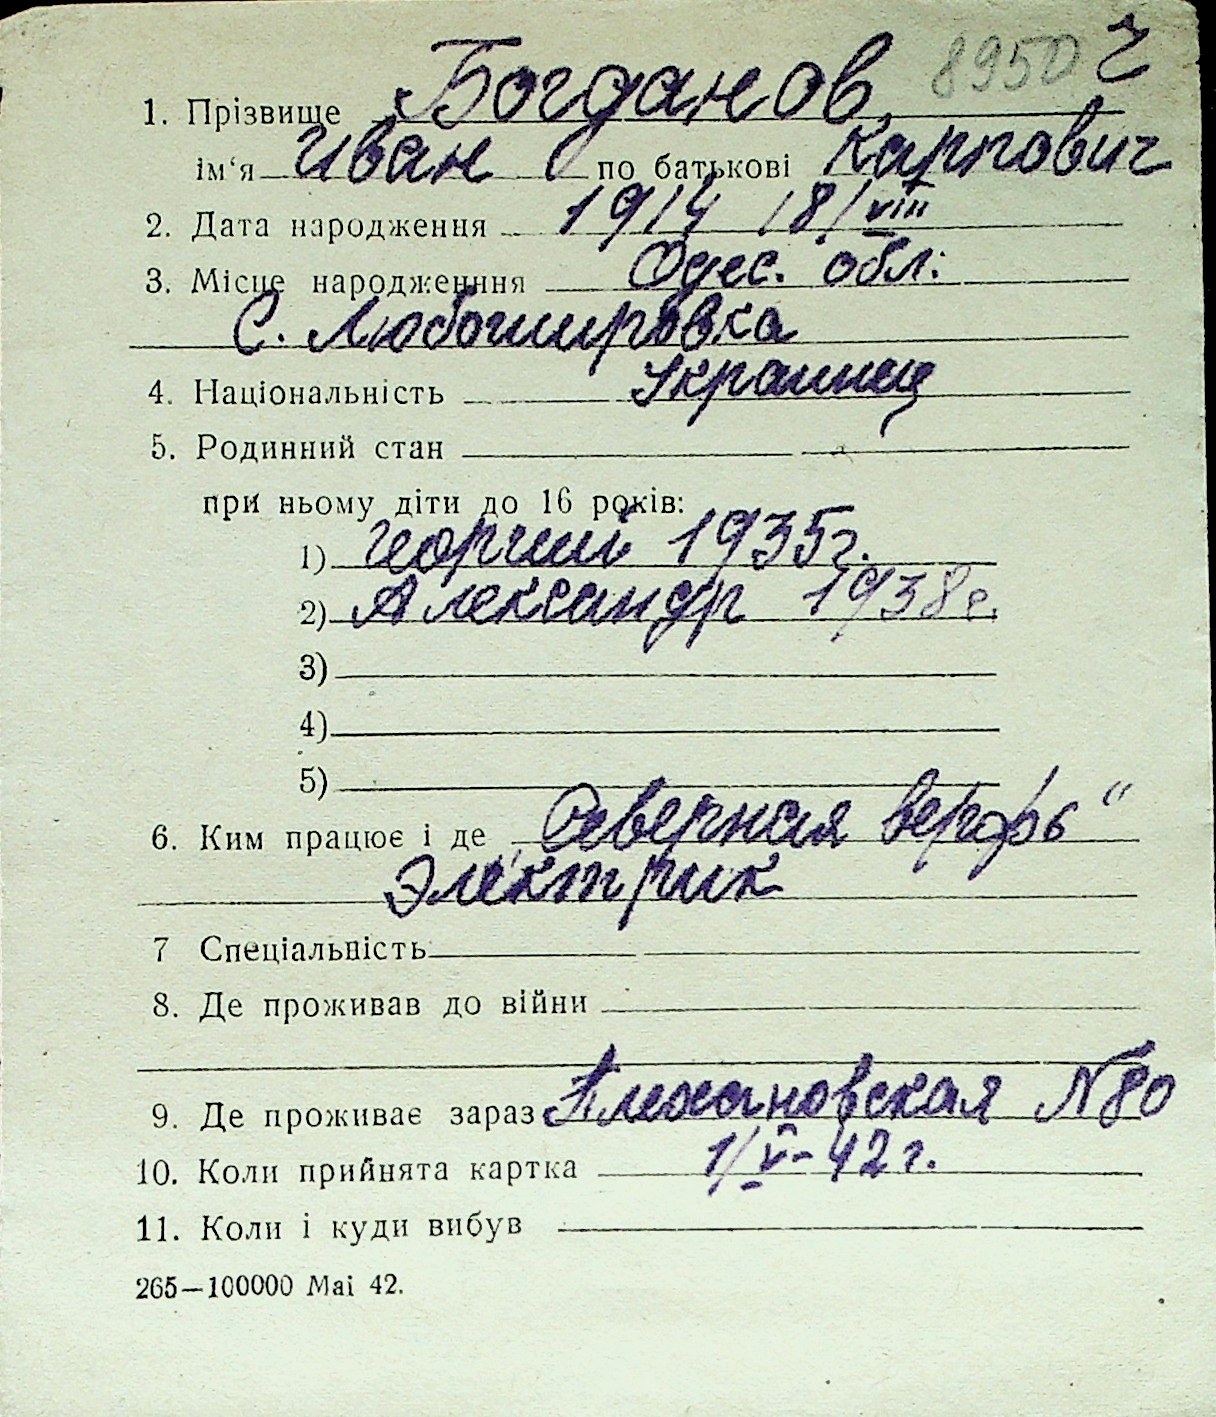 8950 ч
1. Прізвище Богданов
ім‘я Иван по батькові Карпович
2. Дата народження 1914 18/VIII
3. Місце народженння Одес. обл.
С. Любомировка
4. Національність Украинец
5. Родинний стан
при ньому діти до 16 років:
1) Георгий 1935г.
2) Александр 1938г.
3)
4)
5)
6. Ким працює і де „Северная верфь“
Электрик
7 Спеціальність
8. Де проживав до війни
9. Де проживає зараз Плехановская N80
10. Коли прийнята картка 1/V-42г.
11. Коли і куди вибув
265—100000 Маі 42.